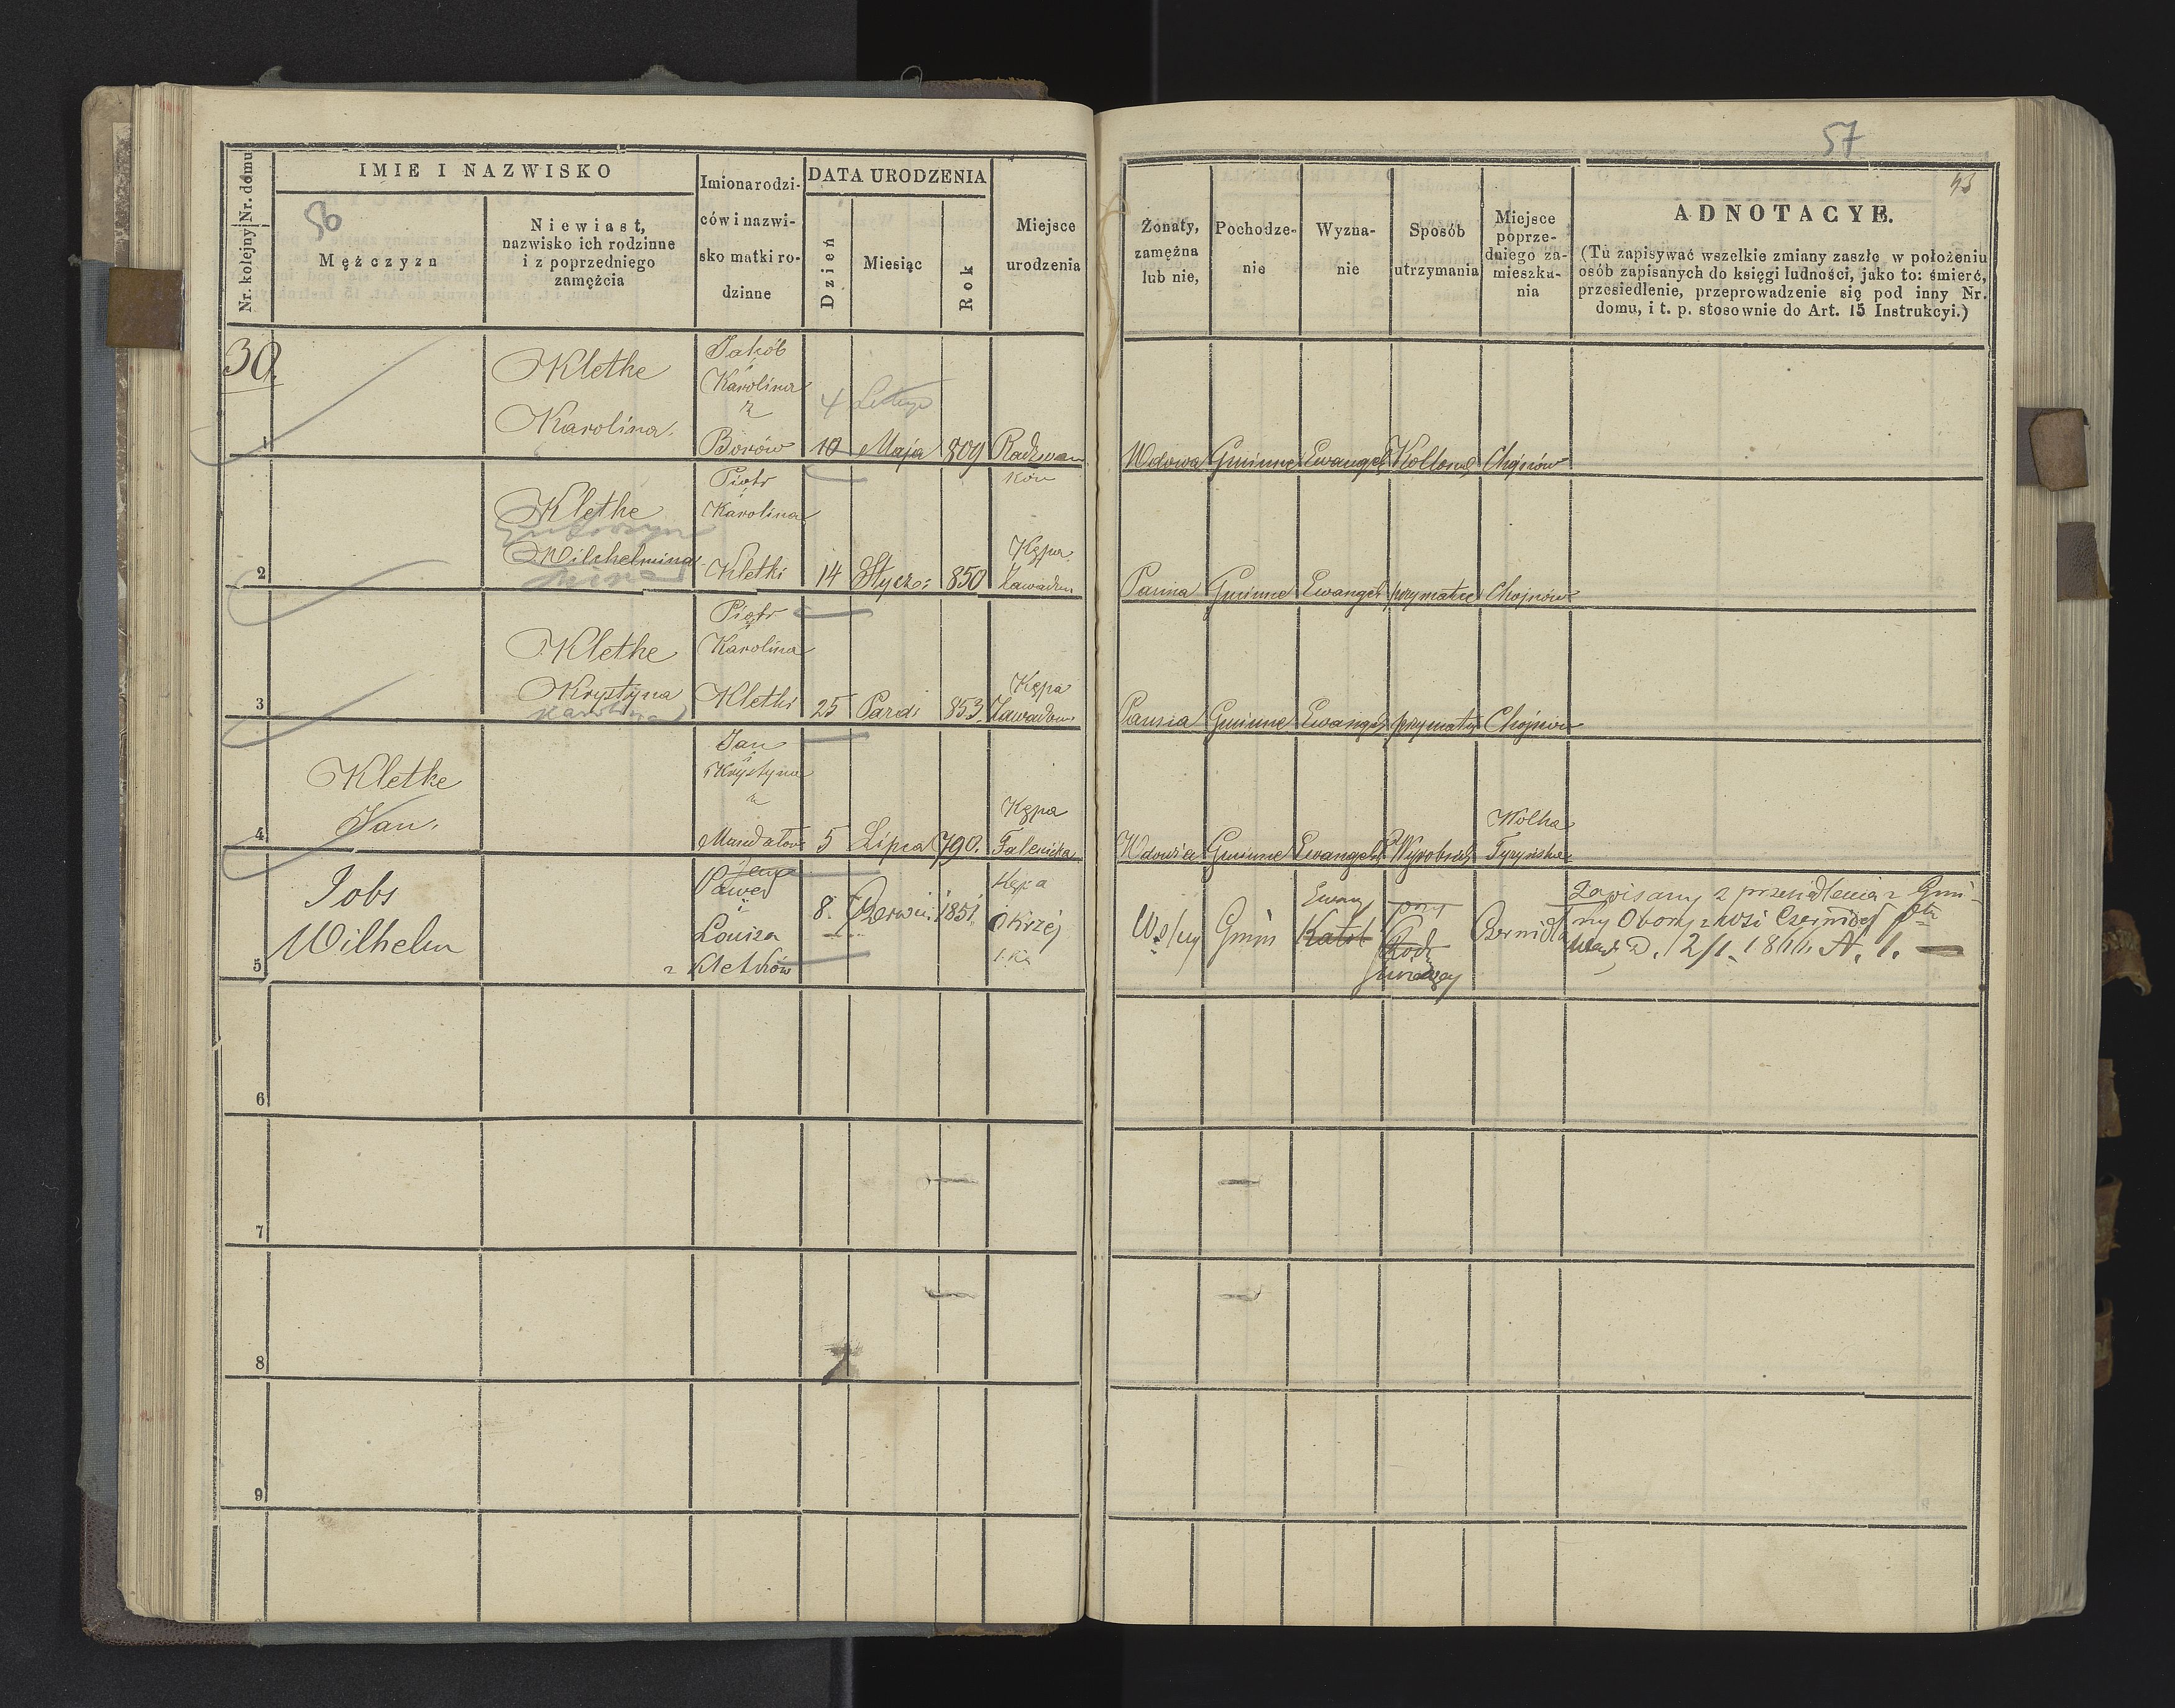 57
43
Nr. kolejny Nr. domu
IMIE I NAZWISKO
56
Mężczyzn
Niewiast,
nazwisko ich rodzinne
i z poprzedniego
zamężcia
Imiona rodzi-
ców i nazwi-
sko matki ro-
dzinne
DATA URODZENIA
Dzień
Miesiąc
Rok
Miejsce
urodzenia
Żonaty,
zamężna
lub nie,
Pochodze-
nie
Wyzna-
nie
Sposób
utrzymania
Miejsce
poprze-
dniego za-
mieszka-
nia
ADNOTACYE.
(Tu zapisywać wszelkie zmiany zaszłe w położeniu
osób zapisanych do księgi ludności, jako to: śmierć,
przesiedlenie, przeprowadzenie się pod inny Nr.
domu, i t. p. stosownie do Art. 15 Instrukcyi.)
30.
1
Klethe
Karolina.
Jakób
Karolina
z
Borów
4 Lutego
10 Maja 809
Radzwan
ków
Wdowa Gminne Ewangel Kolloni Chojnów
2
Klethe
Wilchelmina
Piotr
Karolina
Kletki
14 Stycz: 850
Kępa
Zawadow
Panna Gminne Ewangel przymatce Chojnów
3
Klethe
Krystyna
Karolina
Piotr
Karolina
Kletki
25 Pazd: 853.
Kępa
Zawadow
Panna Gminne Ewangel przymatce Chojnów
4
Kletke
Jan.
Jan
Krystyna
z
5 Lipca 790.
Kępa
Falenicka
Wdowia Gminne Ewangel Wyrobnik
5
Jobs
Wilhelm
Paweł
i
Louiza
z Kletków
8. Czerwc: 1851.
Kępa
Okrzej
Gmin
Ewang
Katol
przy
Rodz
Czernidła
Zapisany z przesiedlenia z Gmi-
ny Obory z wsi Czernideł
D. 2/1. 1866 N. 1.
6
7
8
9